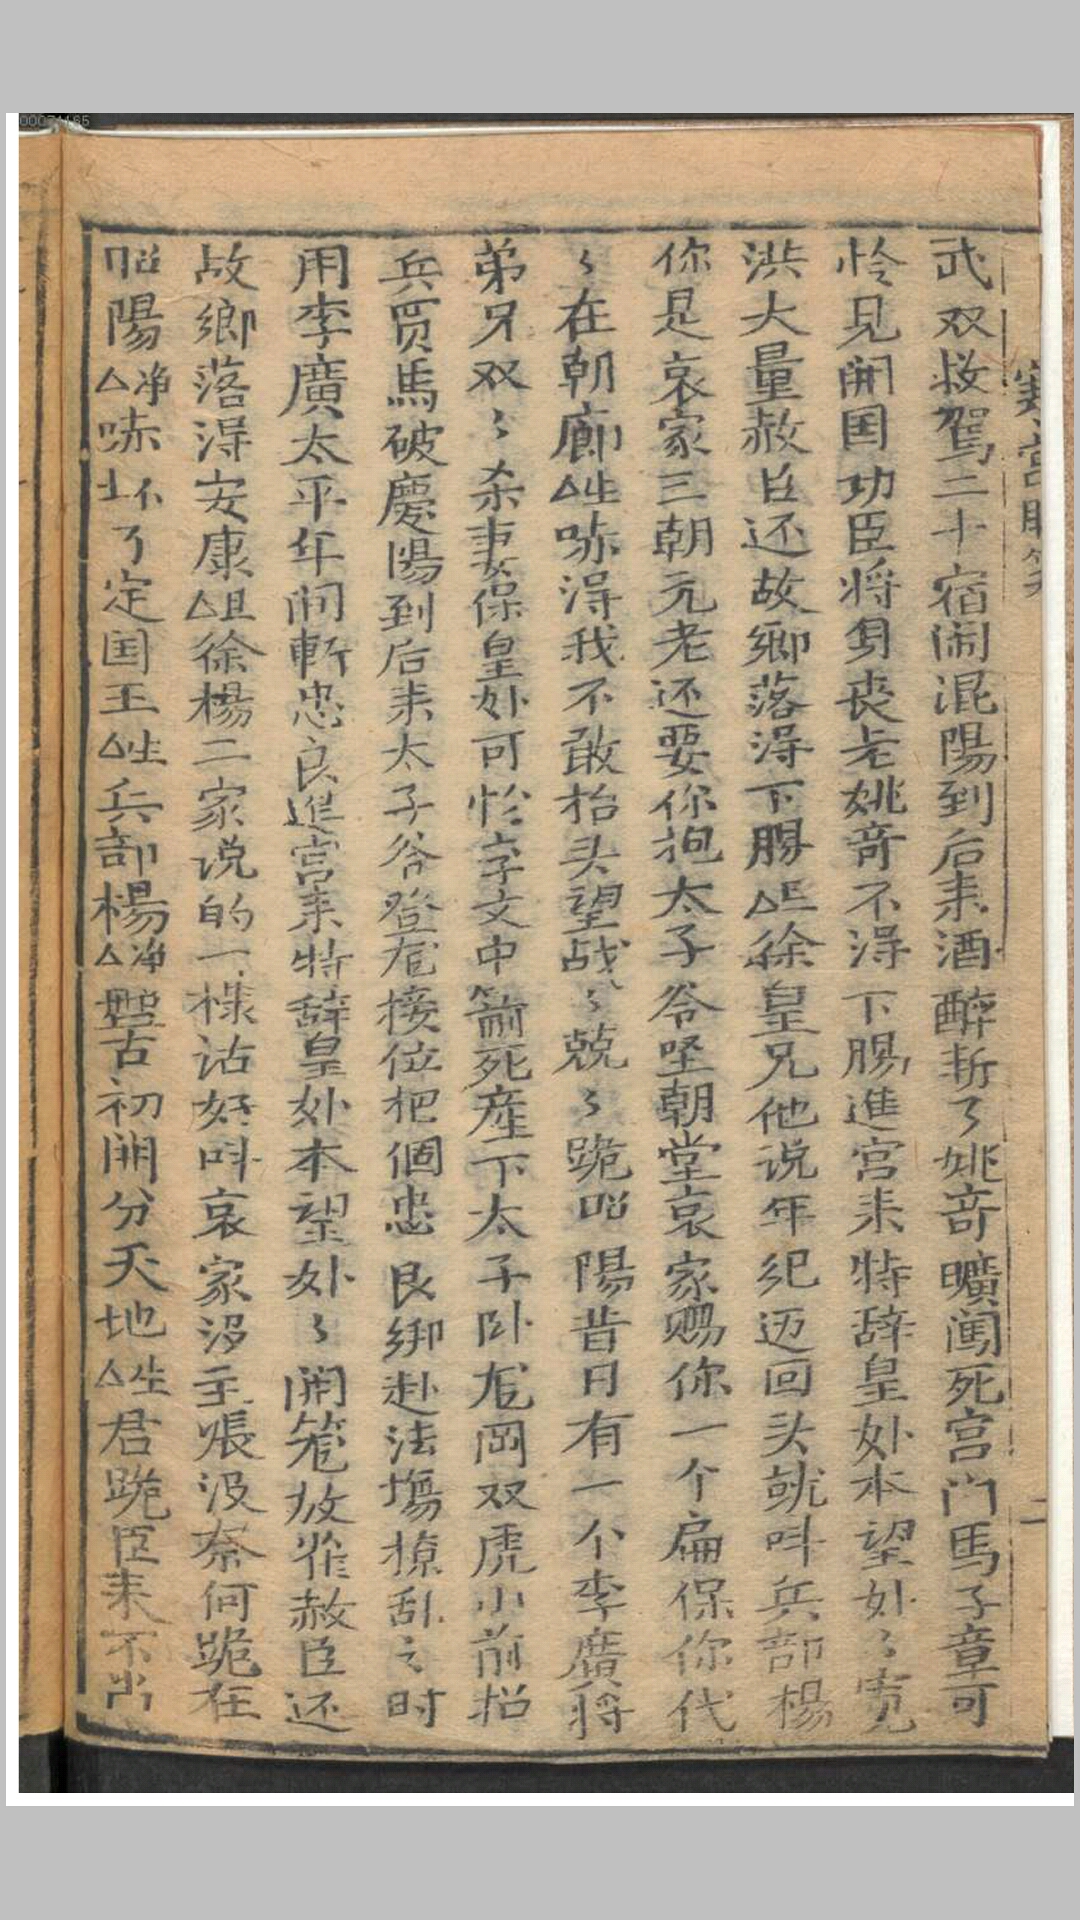 00071165
武双救驾二十宿闹混陽到后耒酒醉斩了姚竒曠闯死宫门馬子章可
怜見開国功臣将身丧老姚竒不淂下賜進宫耒特辞皇妣本望妣〻宽
洪大量赦臣还故鄉落淂下賜△旦徐皇兄他说年纪迈回头就叫兵部楊
你是哀家三朝元老还要你抱太子爷坐朝堂哀家赐你一个扁保你代
〻在朝廊△生唬淂我不敢抬头望战〻兢〻跪昭陽昔日有一个李廣将
弟兄双〻杀妻保皇妣可怜字文中箭死産下太子卧龙岡双虎小前招
兵買馬破慶陽到后耒太子爷登龙接位把個忠良綁赴法塲撩乱之时
用李廣太平年间斬忠良進宫耒特辞皇妣本望妣〻開笼放雀赦臣还
故鄉落淂安康△旦徐楊二家说的一樣话好叫哀家没主張没奈何跪在
昭陽△净唬坏了定国王△生兵部楊△净盤古初開分天地△生君跪臣耒不当
二